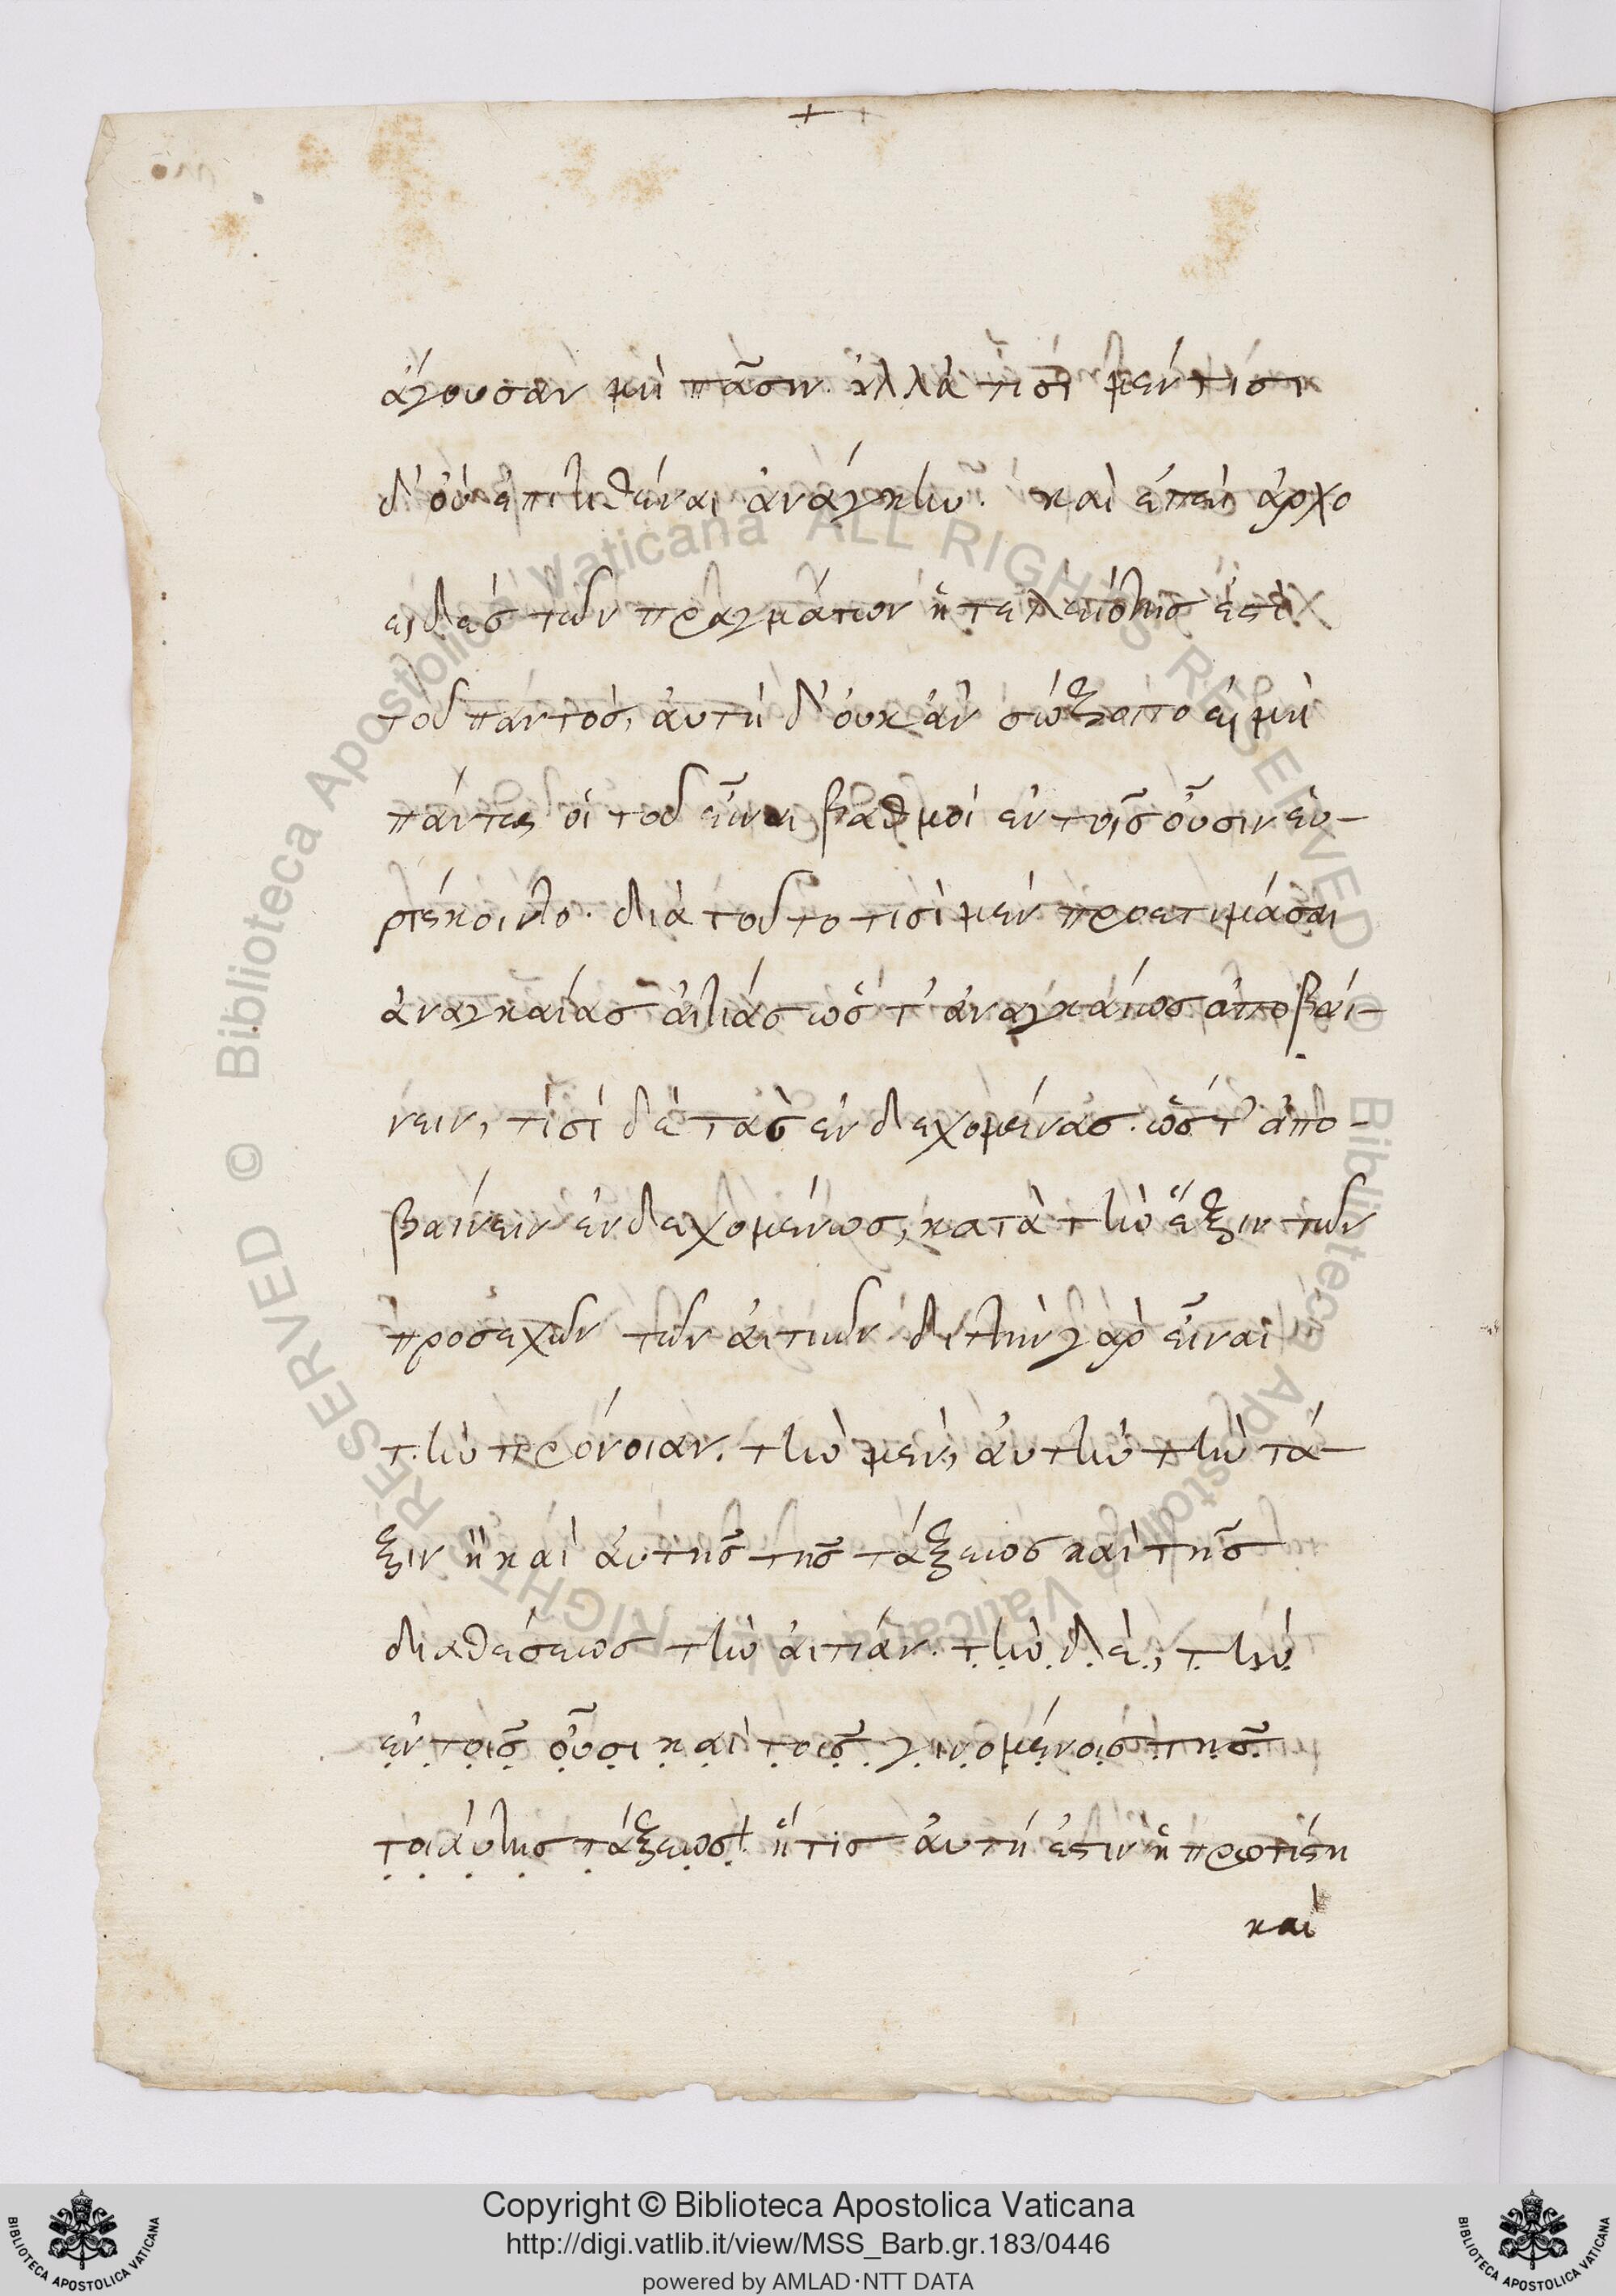 ἄγουσαν μὴ πᾶσιν. ἀλλὰ τισὶ μέν, τισὶ
δ' οὐ ἐπιτιθέναι ἀνάγκην. καὶ ἐπεὶ ἀρχο
ειδὲς τῶν πραγμάτων ἡ τελειότης ἐστὶ
τοῦ παντὸς, αὐτὴ δ' οὐκ ἂν σώξοιτο εἰ μὴ
πάντες οἱ τοῦ εἶναι βαθμοὶ ἐν τοῖς οὖσιν εὑ-
ρίσκοιντο. διὰ τοῦτο τισὶ μὲν προετιμάσαι
ἀναγκαίας αἰτίας ὥστ' ἀναγκαίως ἀποβαί-
νειν, τισὶ δὲ τὰς ἐνδεχομένας. ὥστ' ἀπο-
βαίνειν ἐνδεχομένως, κατὰ τὴν ἕξιν τῶν
προσεχῶν τῶν αἰτιῶν διττὴν γὰρ εἶναι
τὴν πρόνοιαν. τὴν μὲν, αὐτὴν τὴν τά-
ξιν ἢ καὶ αὐτῆς τῆς τάξεως καὶ τῆς
διαθέσεως τὴν αἰτίαν. τὴν δὲ, τὴν
ἐν τοῖς οὖσι καὶ τοῖς γινομένοις τῆς
τοιαύτης τάξεως. ἥτις αὐτή ἐστιν ἡ πρώτιση
καὶ
Copyright © Biblioteca Apostolica Vaticana
http://digi.vatlib.it/view/MSS_Barb.gr.183/0446
powered by AMLAD·NTT DATA
BIBLIOTECA APOSTOLICA VATICANA
BIBLIOTECA APOSTOLICA VATICANA
© Biblioteca Apostolica Vaticana ALL RIGHTS RESERVED © Biblioteca Apostolica Vaticana ALL RIGHTS RESERVED